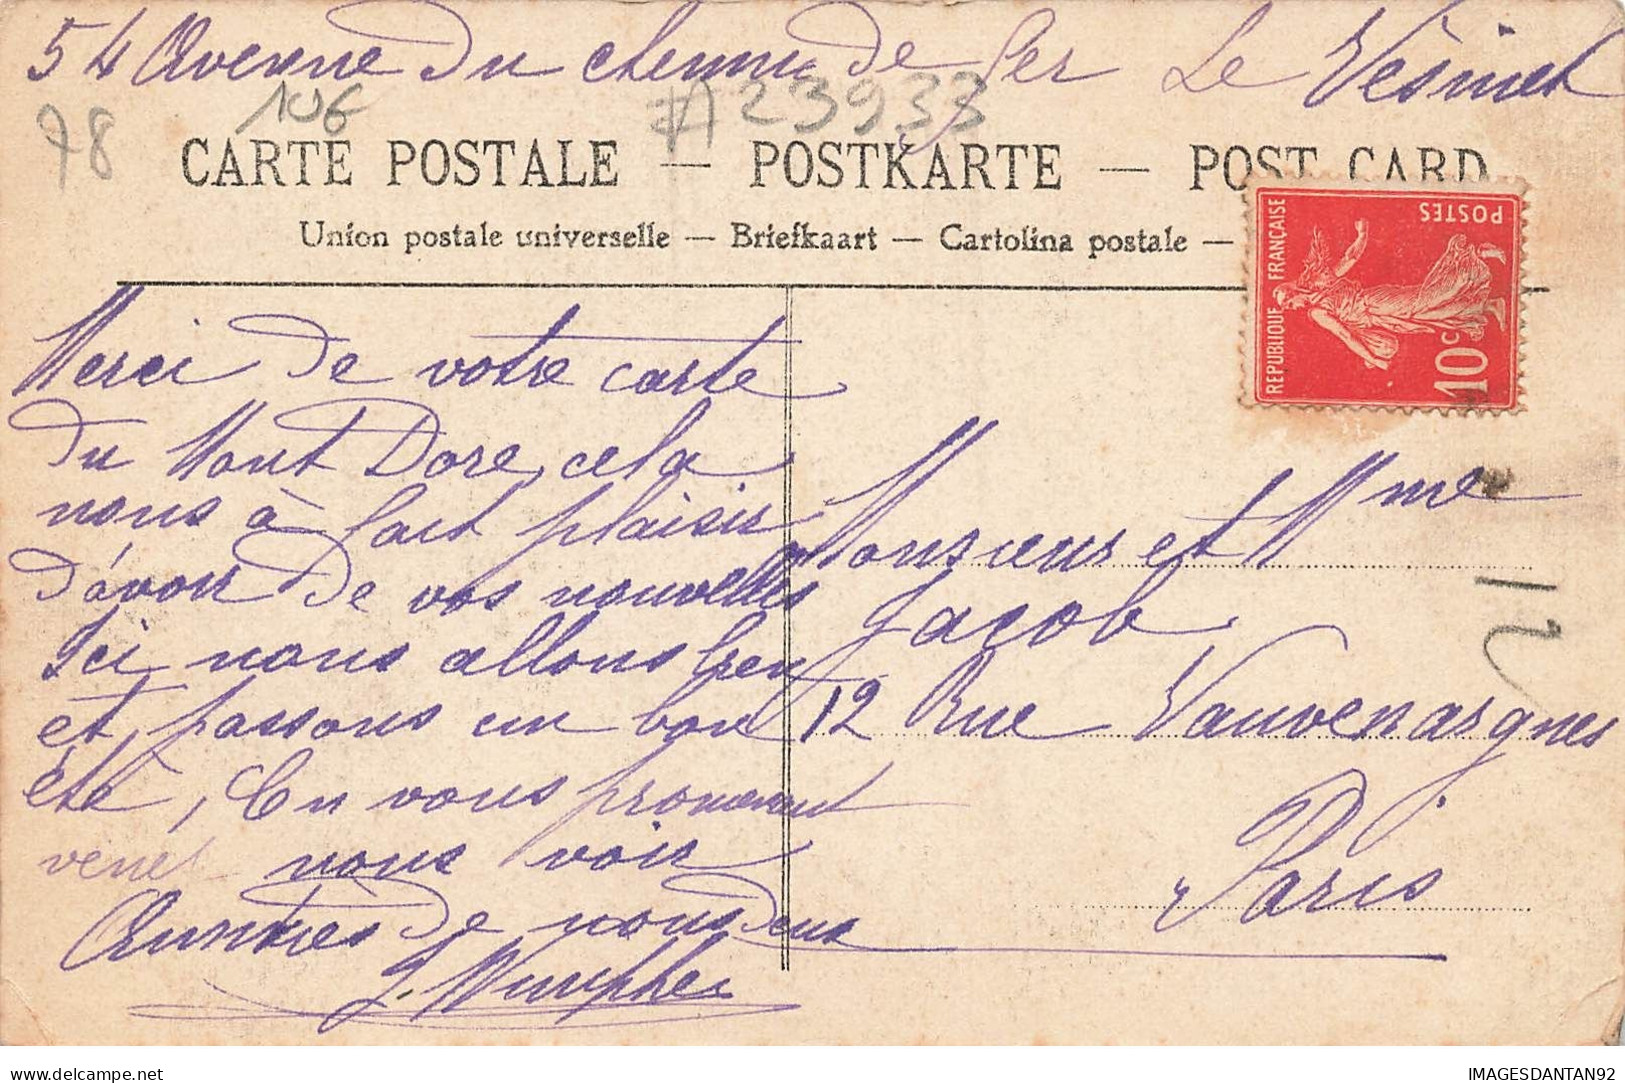 54 Avenue du chemin de fer Le Vésinet
78
10€
#A23933
CARTE POSTALE — POSTKARTE — POST CARD
Union postale universelle — Briefkaart — Cartolina postale —
REPUBLIQUE FRANÇAISE
POSTES
10c
Merci de votre carte
du Mont Dore, cela
nous à fait plaisir
d'avoir de vos nouvelles
Ici nous allons bien
et passons un bon
été, En vous promenant
venez nous voir
Amitiés de nous deux
Monsieur et Mme
Jacob
12 Rue Vauvenargnes
Paris
12
IMAGESDANTAN92